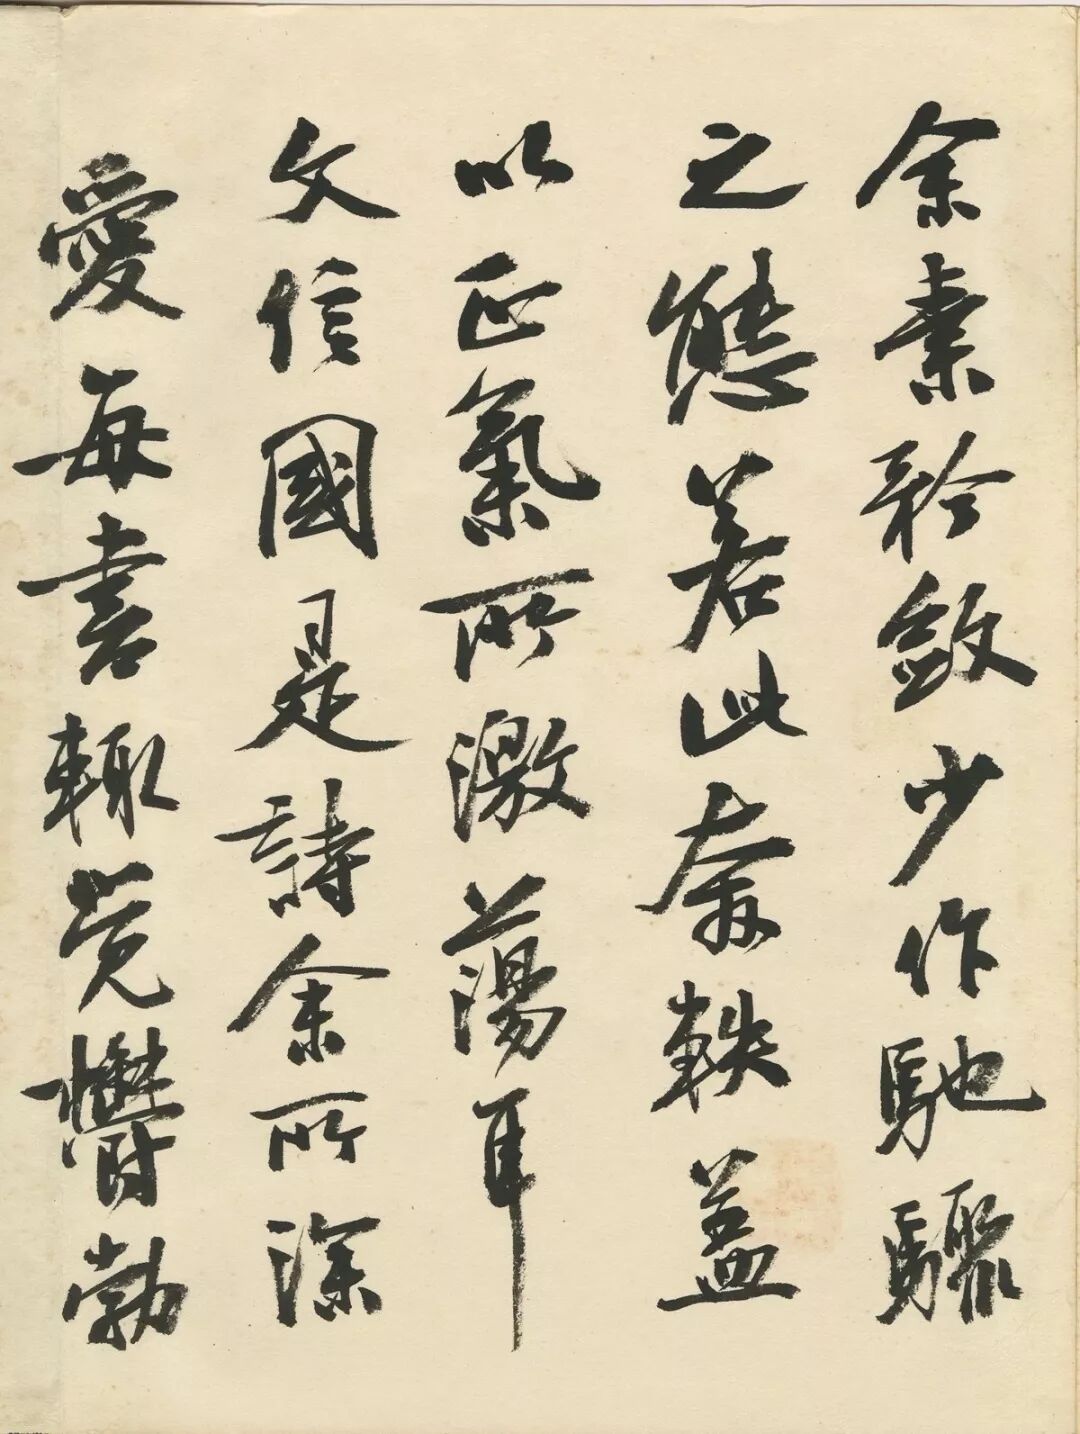 余素矜斂少作馳驟
之態若此奔軼蓋
以正氣所激蕩耳
文信國是詩余所深
愛每書輒覺鬱勃